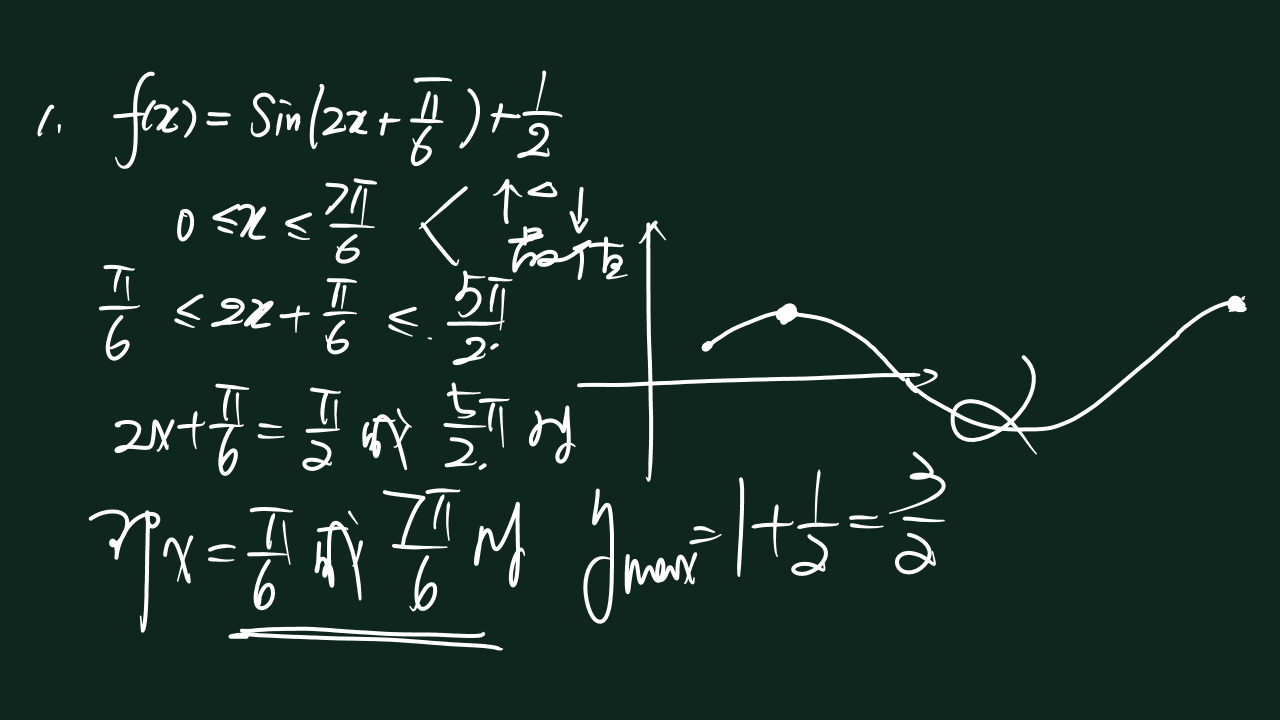 1. f(x) = Sin(2x + π/6) + 1/2
0 ≤ x ≤ 7π/6
π/6 ≤ 2x + π/6 ≤ 5π/2
2x + π/6 = π/2 或 5/2 π 时
即 x = π/6 或 7π/6 时 y max = 1 + 1/2 = 3/2